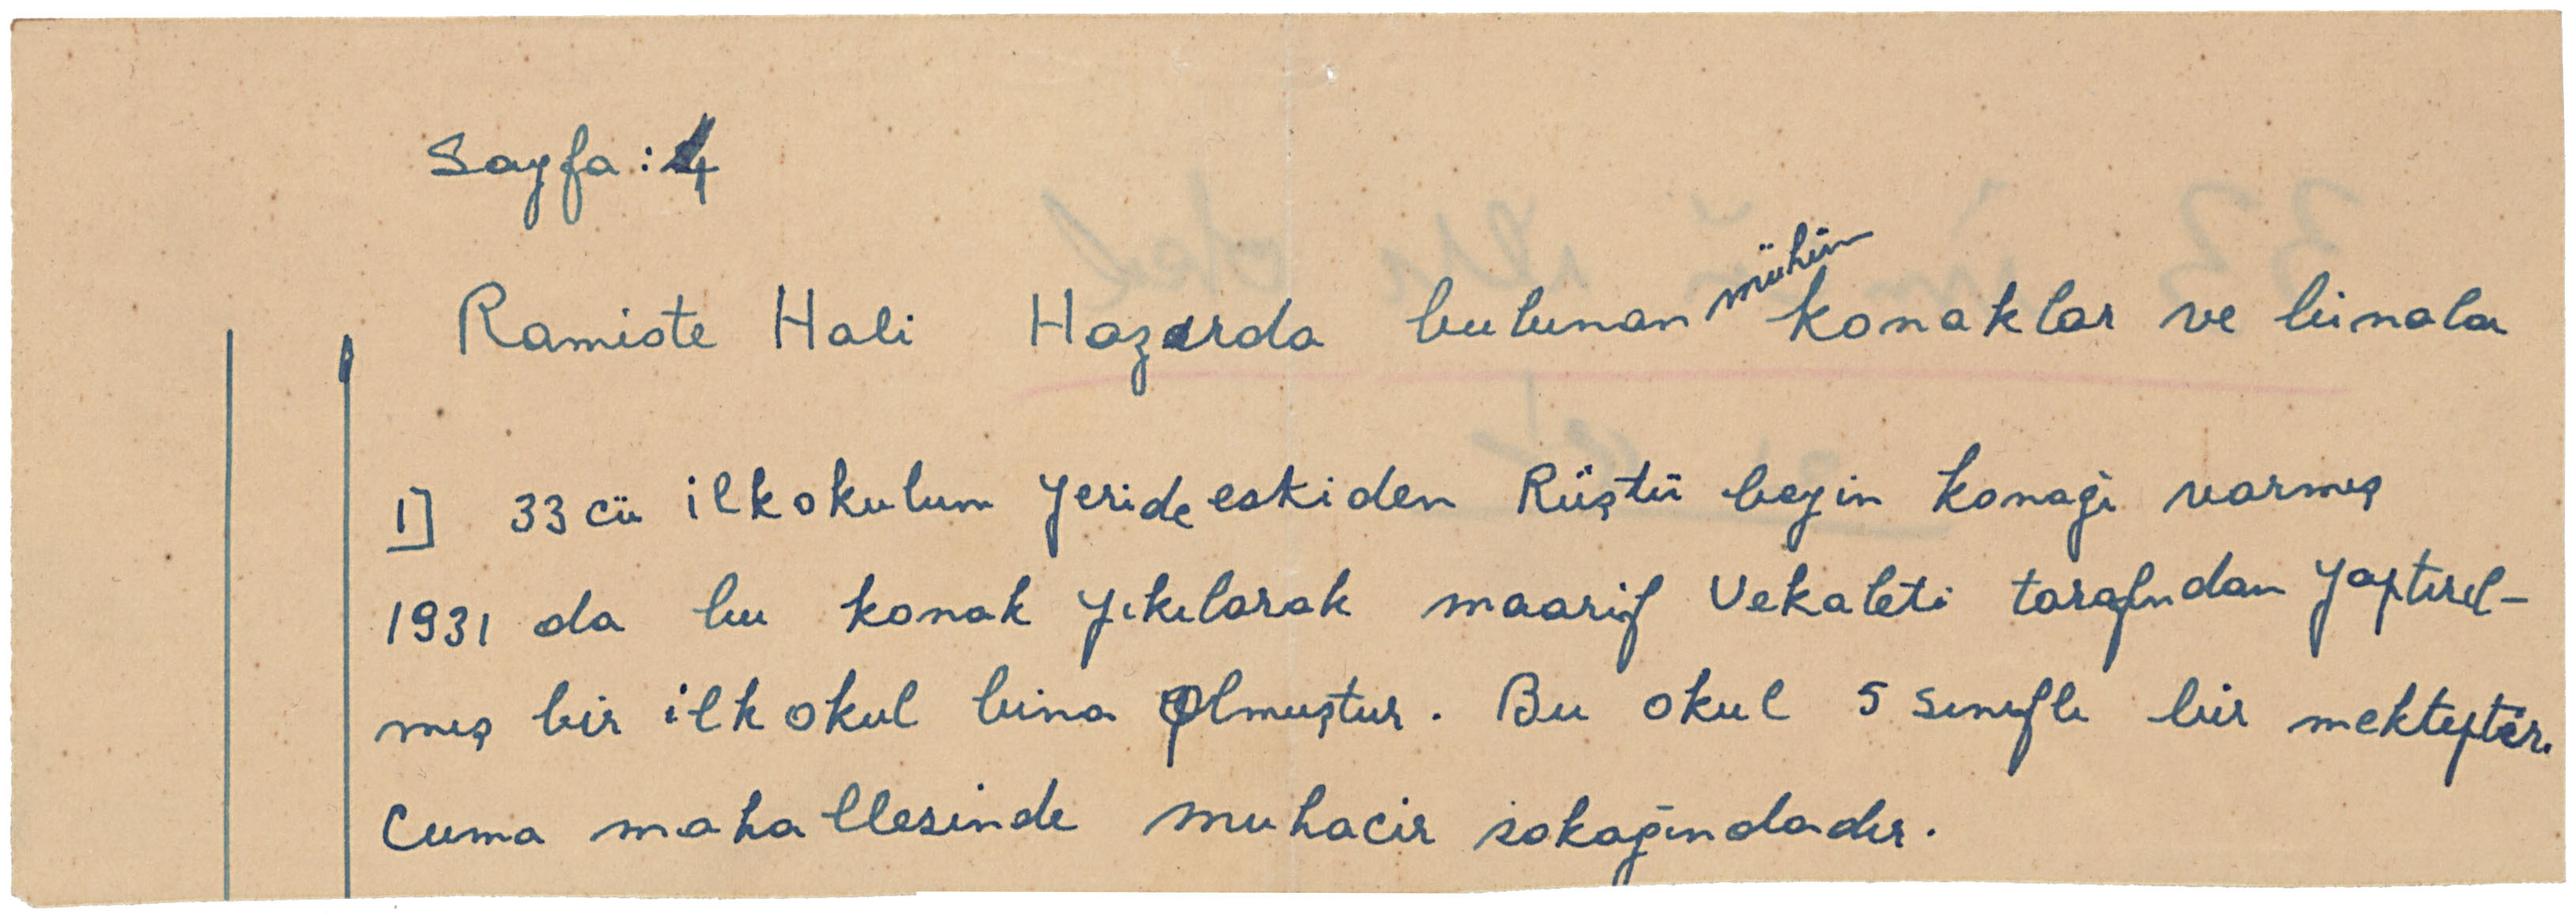 Sayfa: 4
Ramiste Hali Hazırda bulunan mühim konaklar ve binalar
1] 33 cü ilkokulun yeride eskiden Rüştü beyin konağı varmış
1931 da bu konak yıkılarak maarif Vekaleti tarafından yaptırıl-
mış bir ilk okul bina olmuştur. Bu okul 5 sınıflı bir mekteptir.
Cuma mahallesinde muhacir sokağındadır.